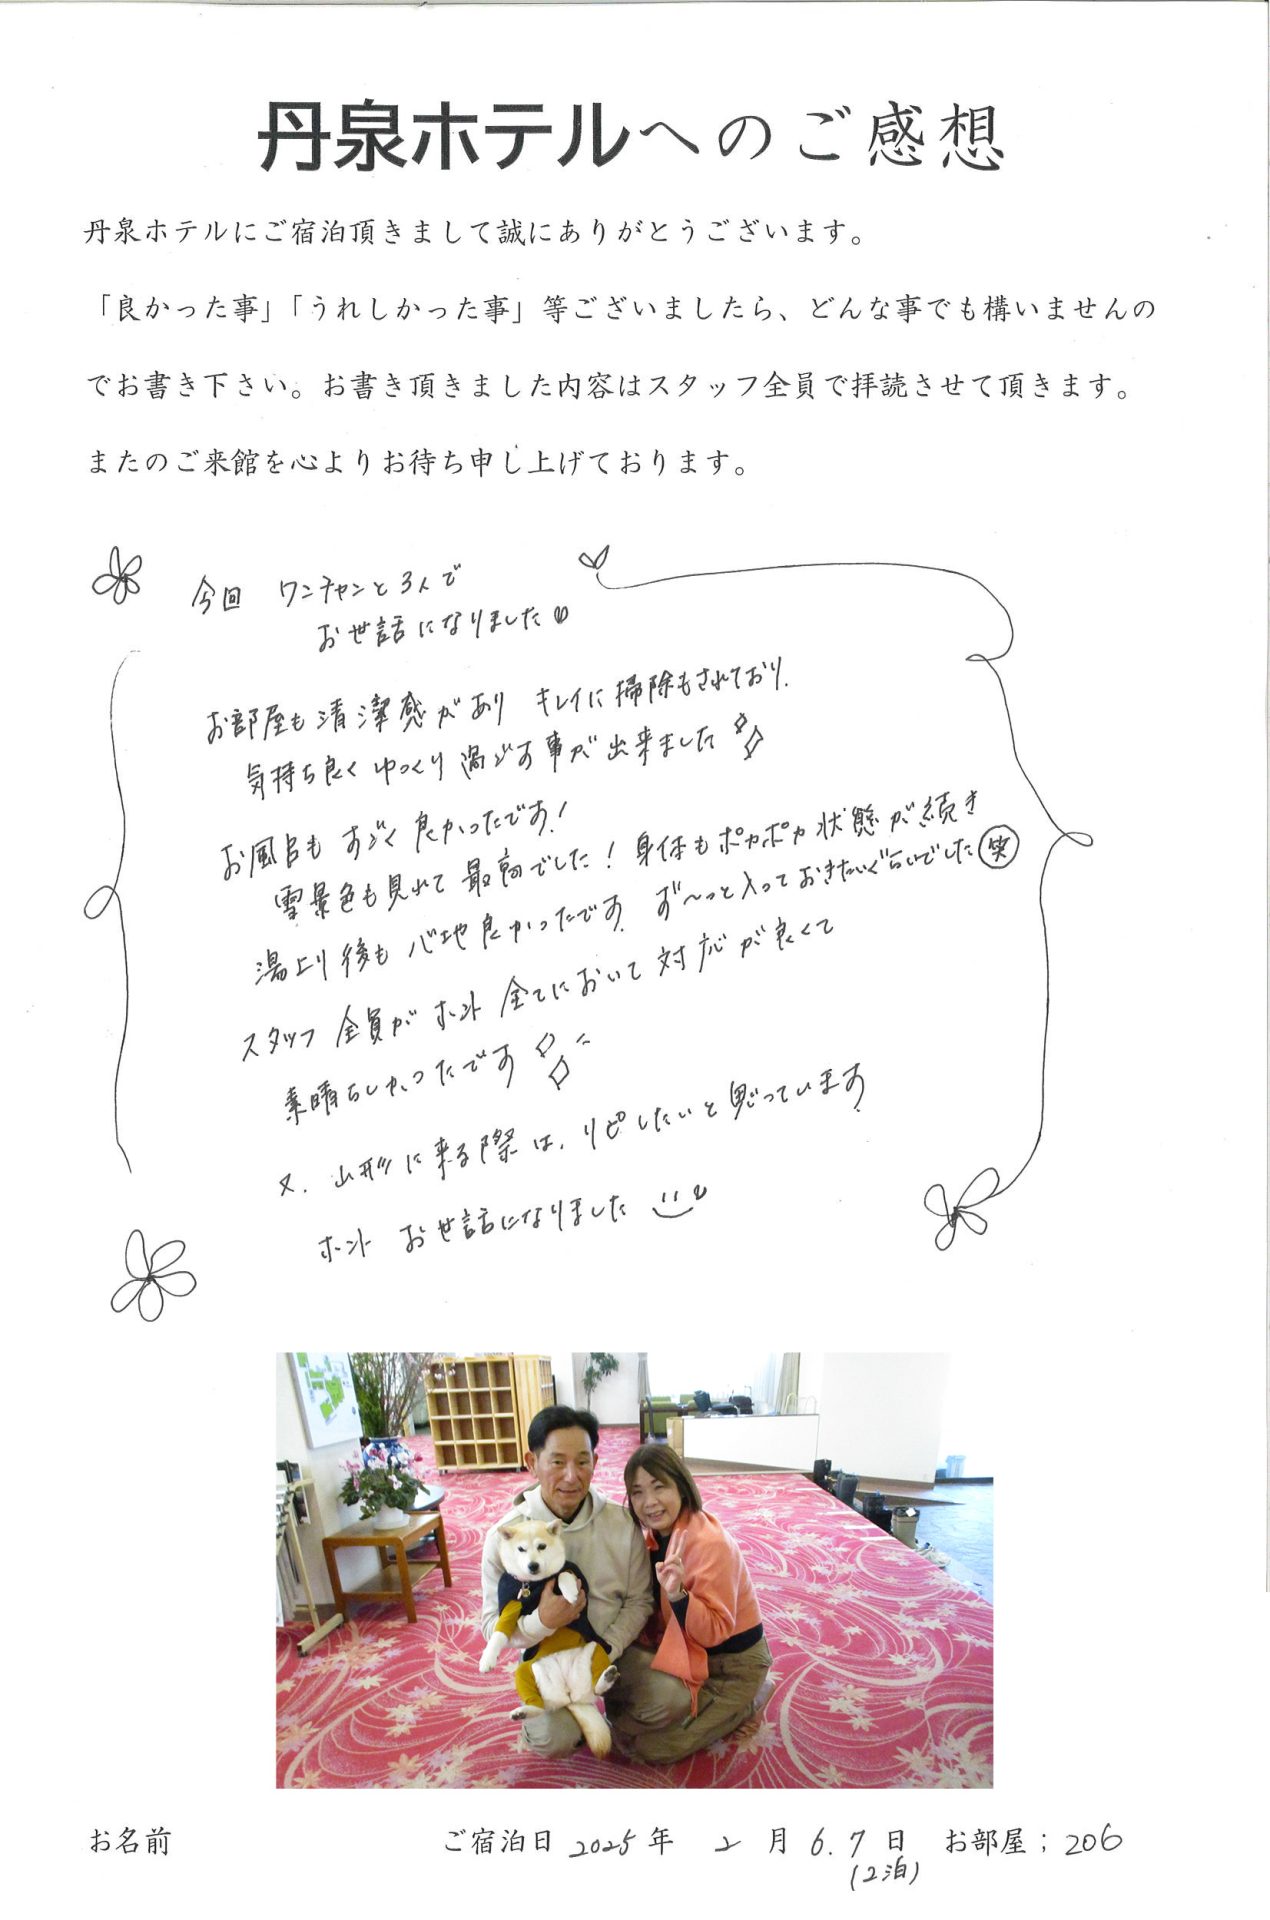 丹泉ホテルへのご感想
丹泉ホテルにご宿泊頂きまして誠にありがとうございます。
「良かった事」「うれしかった事」等ございましたら、どんな事でも構いませんの
でお書き下さい。お書き頂きました内容はスタッフ全員で拝読させて頂きます。
またのご来館を心よりお待ち申し上げております。
今回 ワンチャンと3人で
お世話になりました
お部屋も清潔感があり キレイに掃除もされており、
気持ち良くゆっくり過ごす事が出来ました
お風呂もすごく良かったです!
雪景色も見れて最高でした!身体もポカポカ状態が続き
湯上り後も心地良かったです。ず〜っと入っておきたいぐらいでした㊗笑
スタッフ全員がホント全てにおいて対応が良くて
素晴らしかったです
又、山形に来る際は、リピしたいと思っています。
ホント お世話になりました
お名前 ご宿泊日 2025年 2月 6.7日 お部屋;206
(2泊)